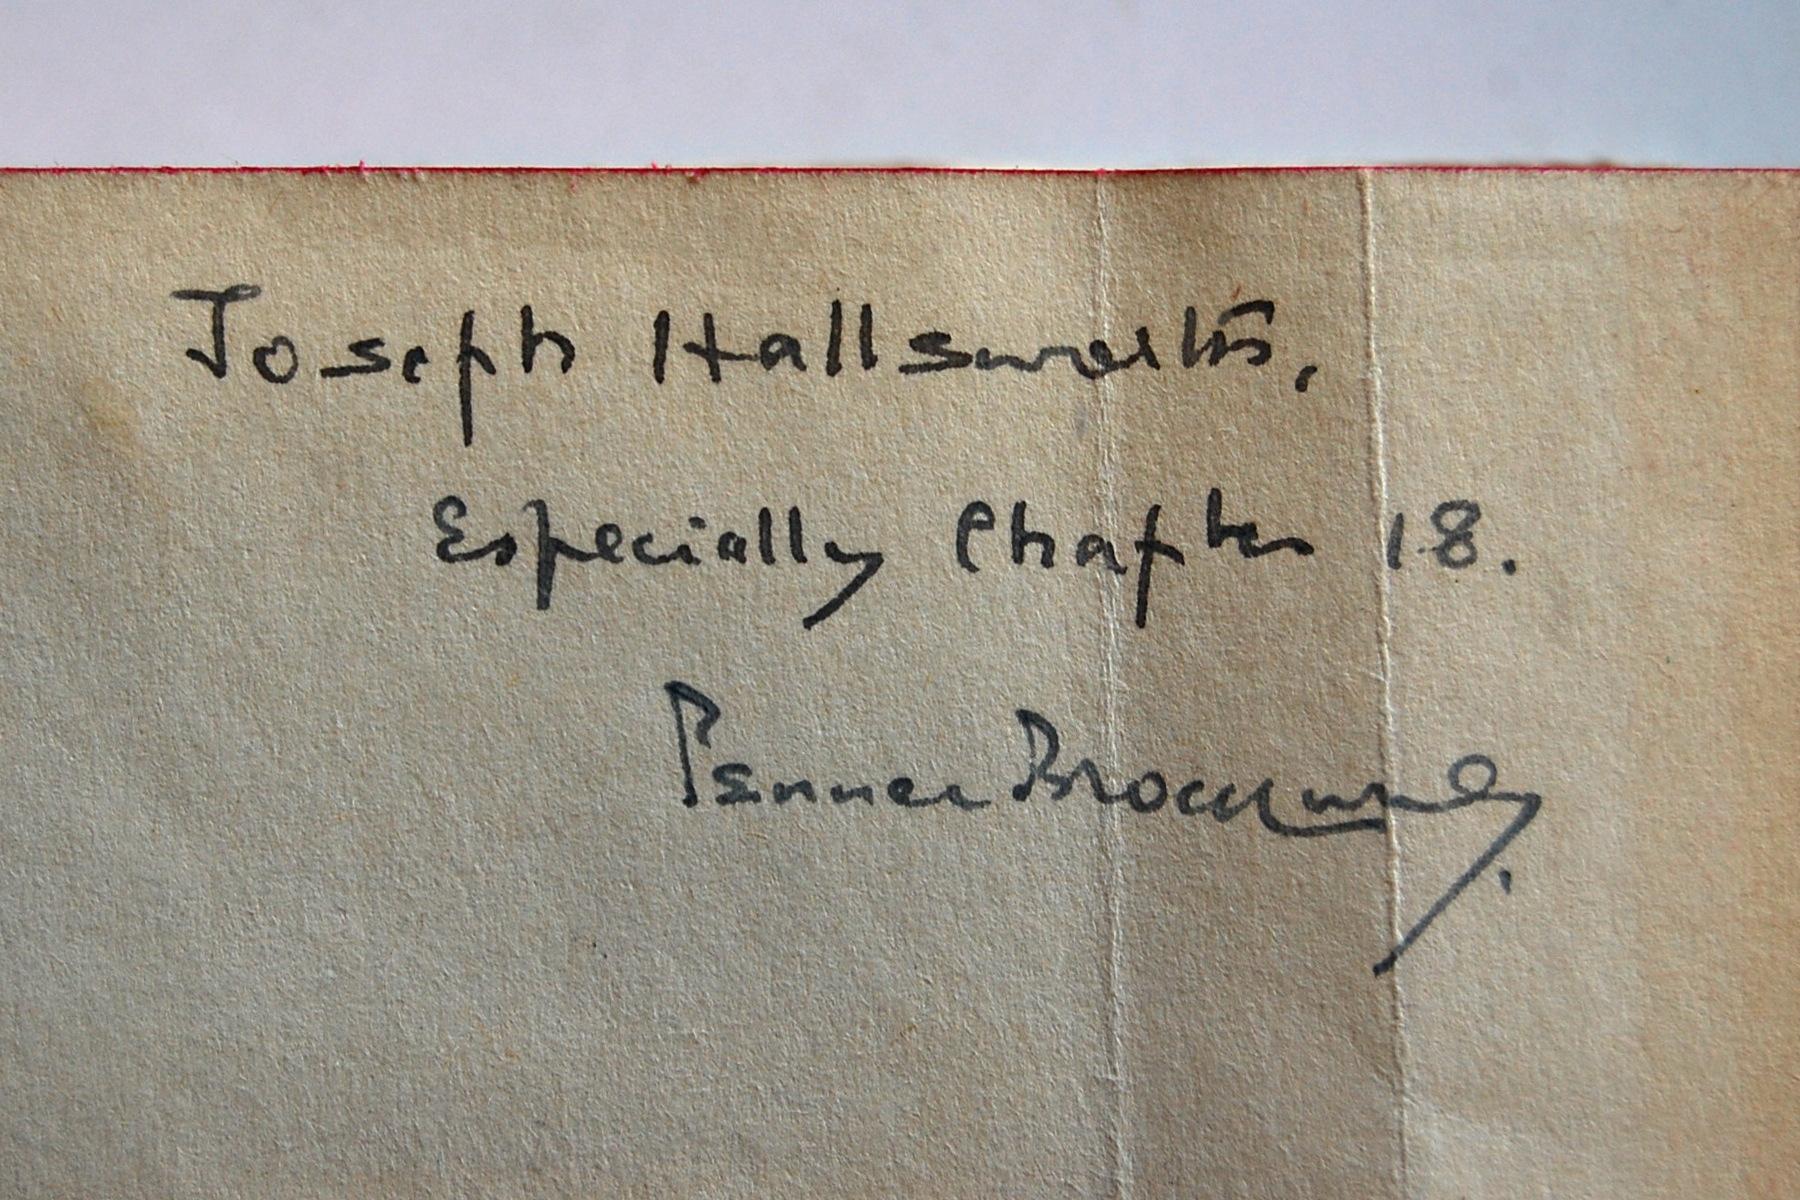 Joseph Hallsworth,
Especially Chapter 18.
Fenner Brockway.